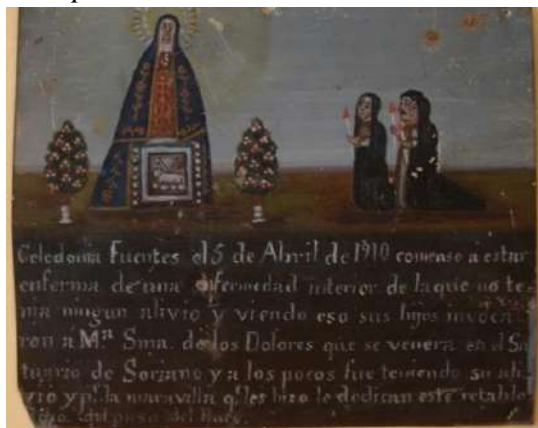 Celedonia Fuentes el 5 de Abril de 1910 comenso a estar
enferma de una enfermedad interior de la que no te-
nia ningun alivio y viendo eso sus hijos invoca
ron á Mª Sma. de los Dolores que se venera en el San
tuario de Soriano y a los pocos fue teniendo su ali-
vio y p.r la maravilla q.e les hizo le dedican este retablo